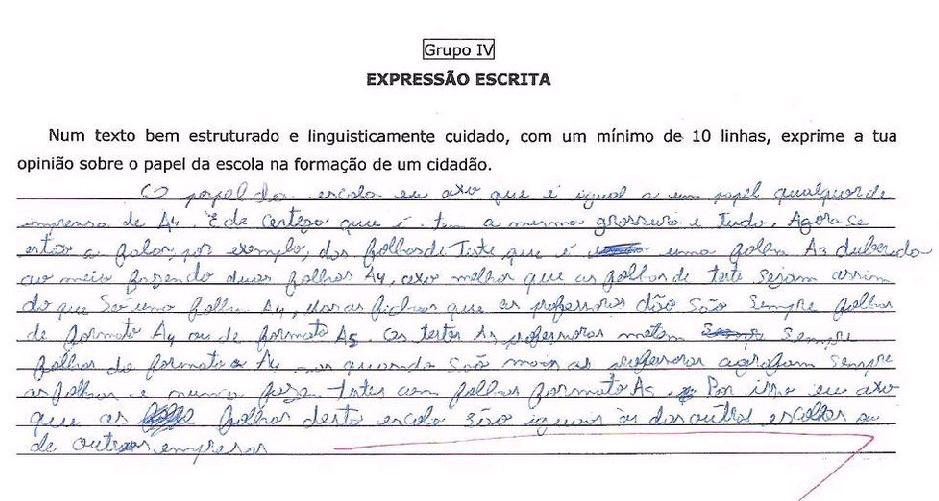 Grupo IV
EXPRESSÃO ESCRITA
Num texto bem estruturado e linguisticamente cuidado, com um mínimo de 10 linhas, exprime a tua
opinião sobre o papel da escola na formação de um cidadão.
O papel da escola eu axo que é igual a um papel qualquer de
impresa de A4. E de certeza que é tem a mesma grossura e tudo. Agora se
estão a falar, por exemplo, das folhas de Teste que é uma folha A3 dubrada
ao meio fazendo duas folhas A4, axo melhor que as folhas de teste sejam assim
do que Ser uma folha A4, mas as fichas que as professoras dão São Sempre folhas
de formato A4 ou de formato A5. Os testes As professoras metem Sempre
folhas do formato A4 mas quando São mais as professoras agrafam Sempre
as folhas e nunca fazem testes com folhas formato A5. Por isso eu axo
que as folhas desta escola são iguais às das outras escolas ou
de outras empresas